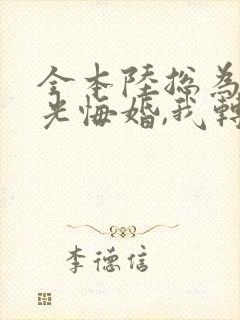 全本陸總為
光悔婚,我轉
李德信